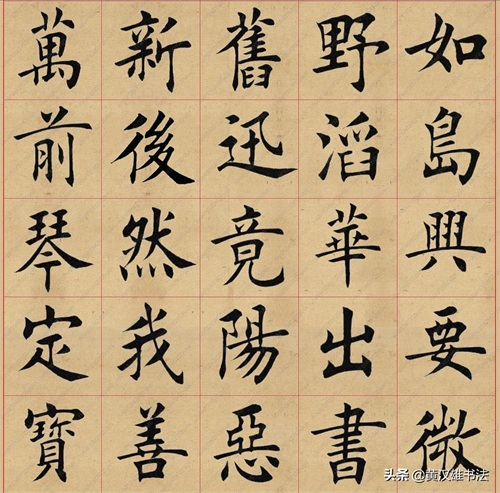 萬新舊野如
前後迅滔島
琴然竟華興
定我陽出要
寶善惡書微
头条 @黄汉雄书法